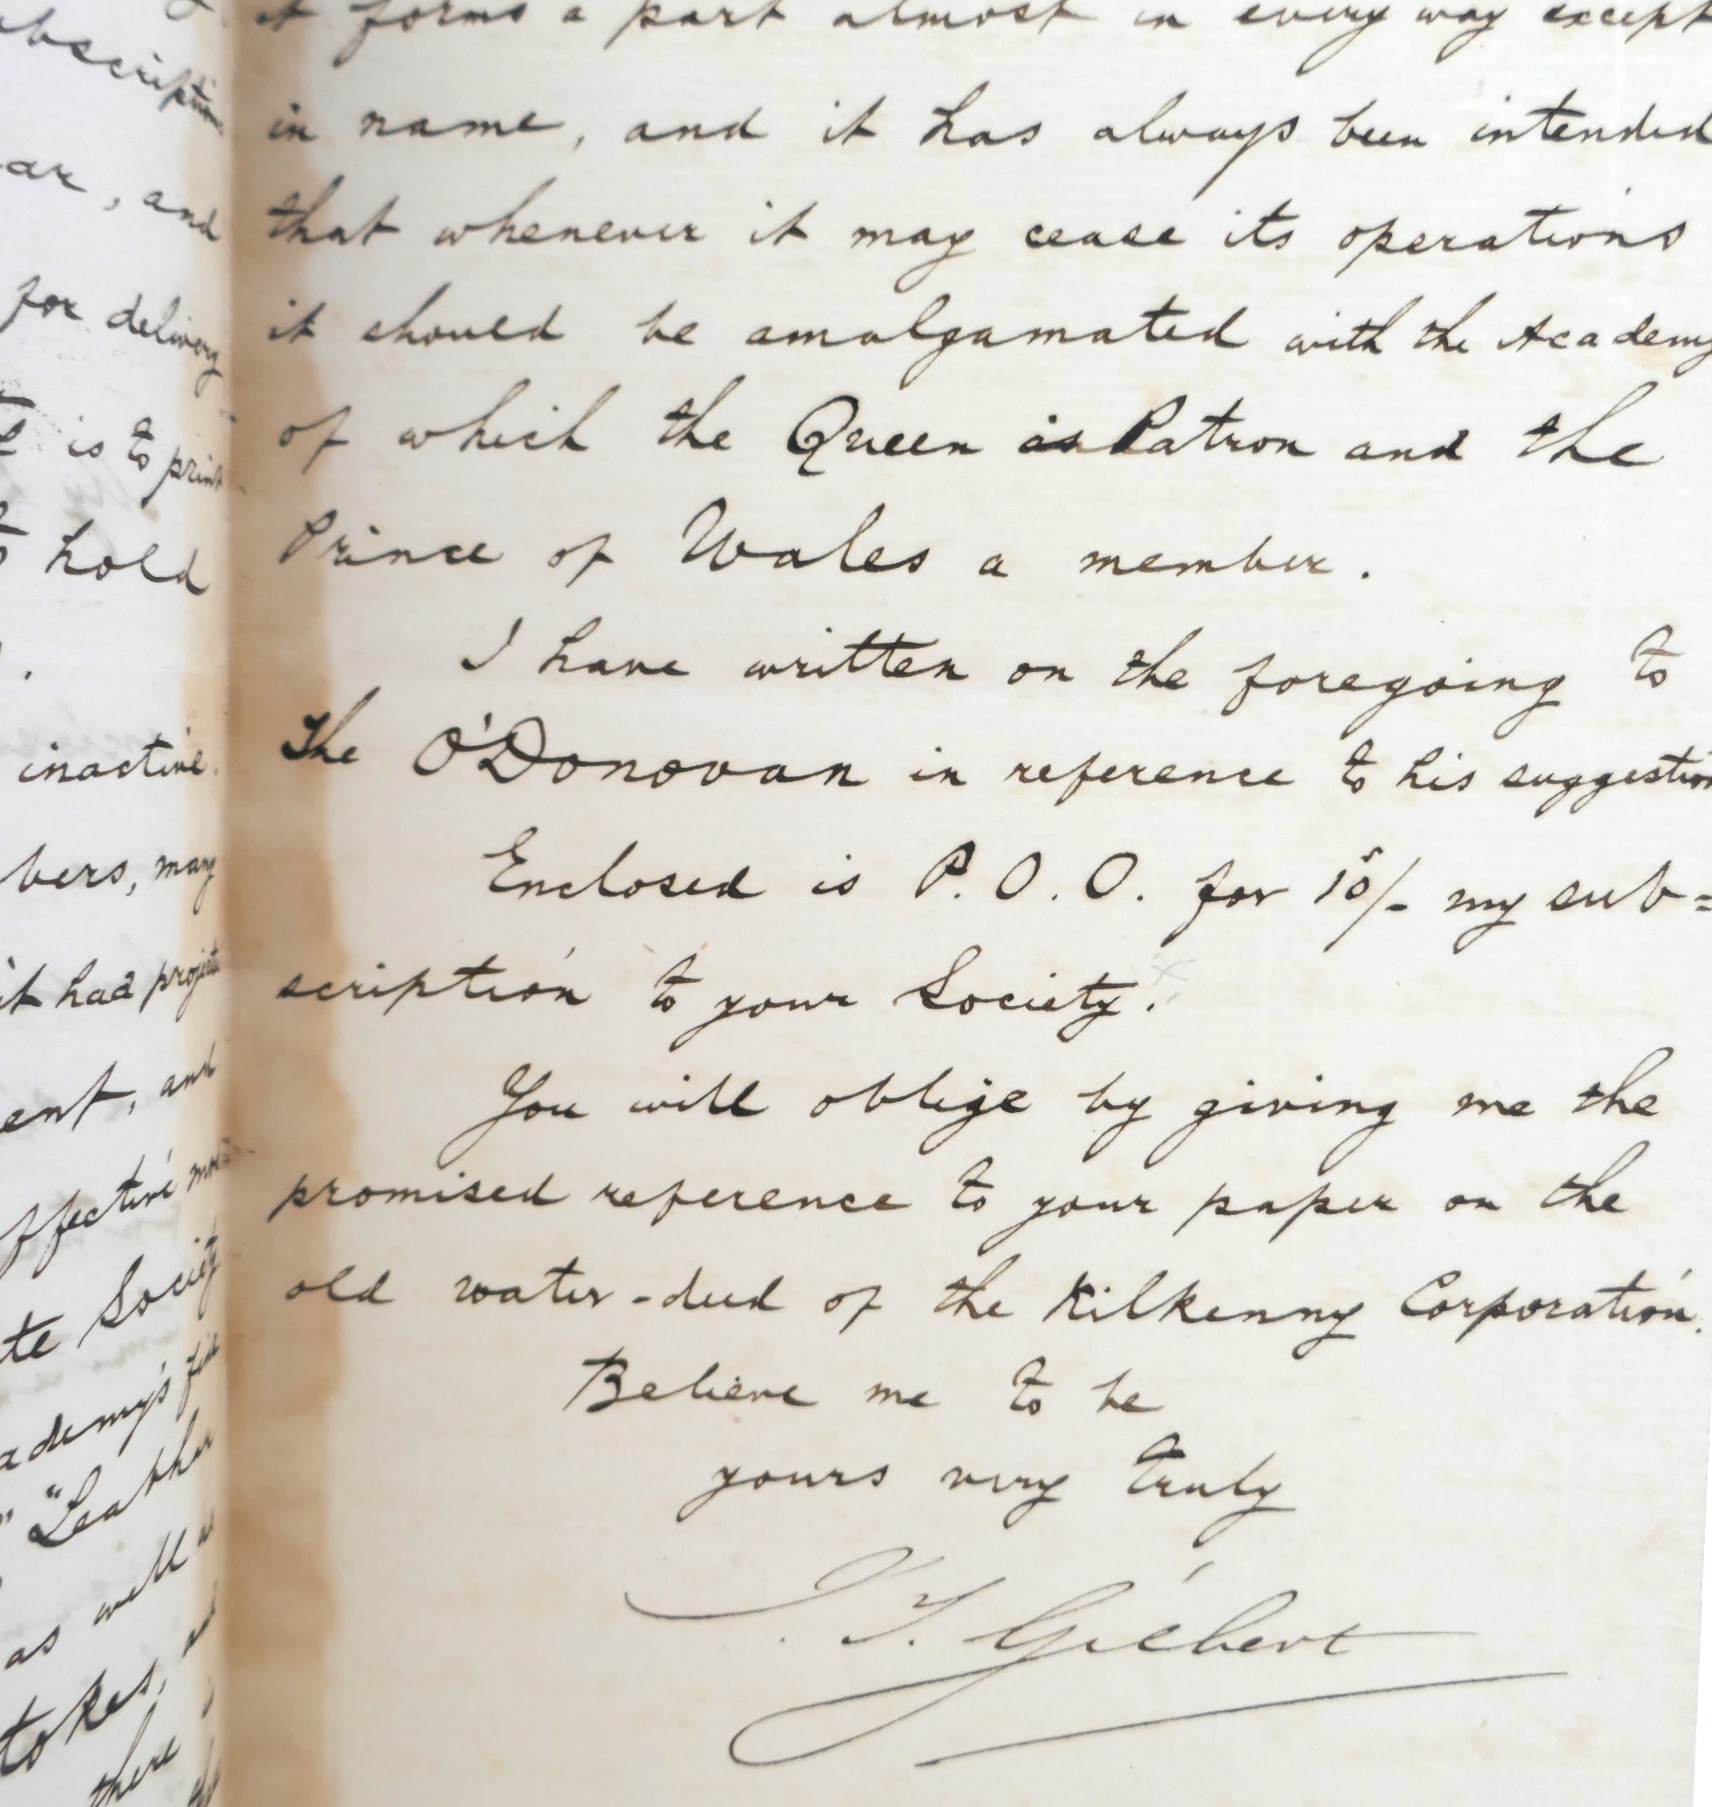 bscription
ar, and
for delivery
is to print
hold
inactive.
bers, many
it had
ent, and
ffective
te Society
ademy's
"Leather
as well as
tokes, and
there
it forms a part almost in every way except
in name, and it has always been intended
that whenever it may cease its operations
it should be amalgamated with the Academy
of which the Queen is Patron and the
Prince of Wales a member.
I have written on the foregoing to
The O'Donovan in reference to his suggestion
Enclosed is P.O.O. for 10/- my sub=
scription to your Society.
You will oblige by giving me the
promised reference to your paper on the
old water-deed of the Kilkenny Corporation.
Believe me to be
yours very truly
J. T. Gilbert